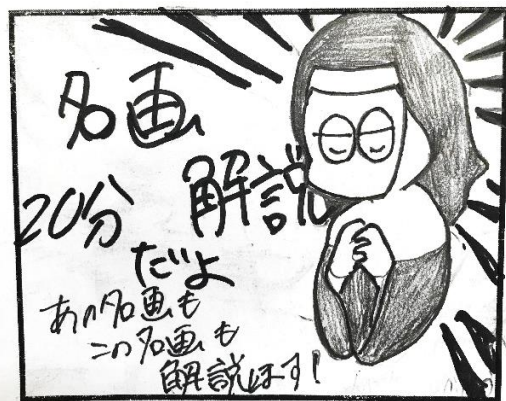 名画
20分 解説
だよ
あの名画も
この名画も
解説します!